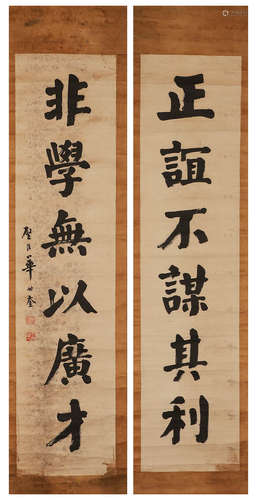 正誼不謀其利
非學無以廣才
華世奎